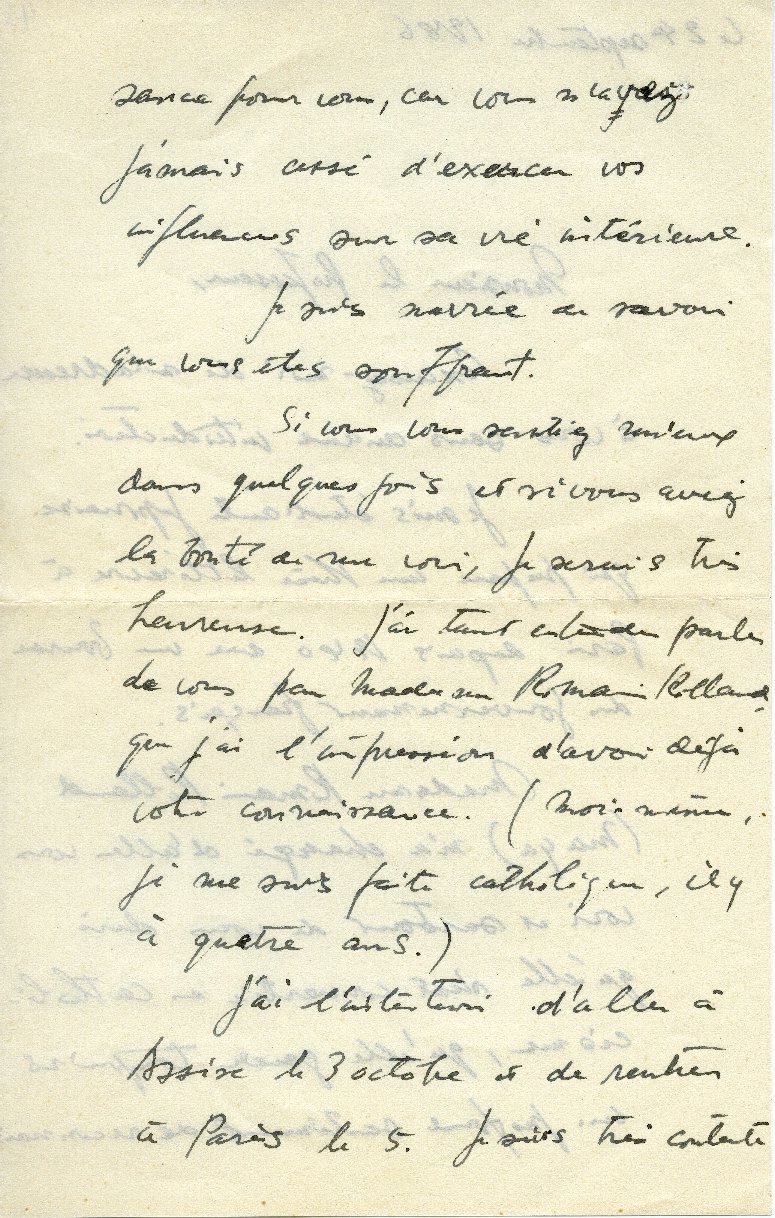 sance pour vous, car vous n'avez
jamais cessé d'exercer vos
influences sur sa vie intérieure.
Je suis navrée de savoir
que vous êtes souffrant.
Si vous vous sentiez mieux
dans quelques jours et si vous aviez
la bonté de me voir, je serais très
heureuse. J'ai tant entendu parler
de vous par Madame Romain Rolland,
que j'ai l'impression d'avoir déjà
votre connaissance. (Moi-même,
je me suis faite catholique, il y
à quatre ans.)
J'ai l'intention d'aller à
Assise le 3 octobre et de rentrer
à Paris le 5. Je suis très contente